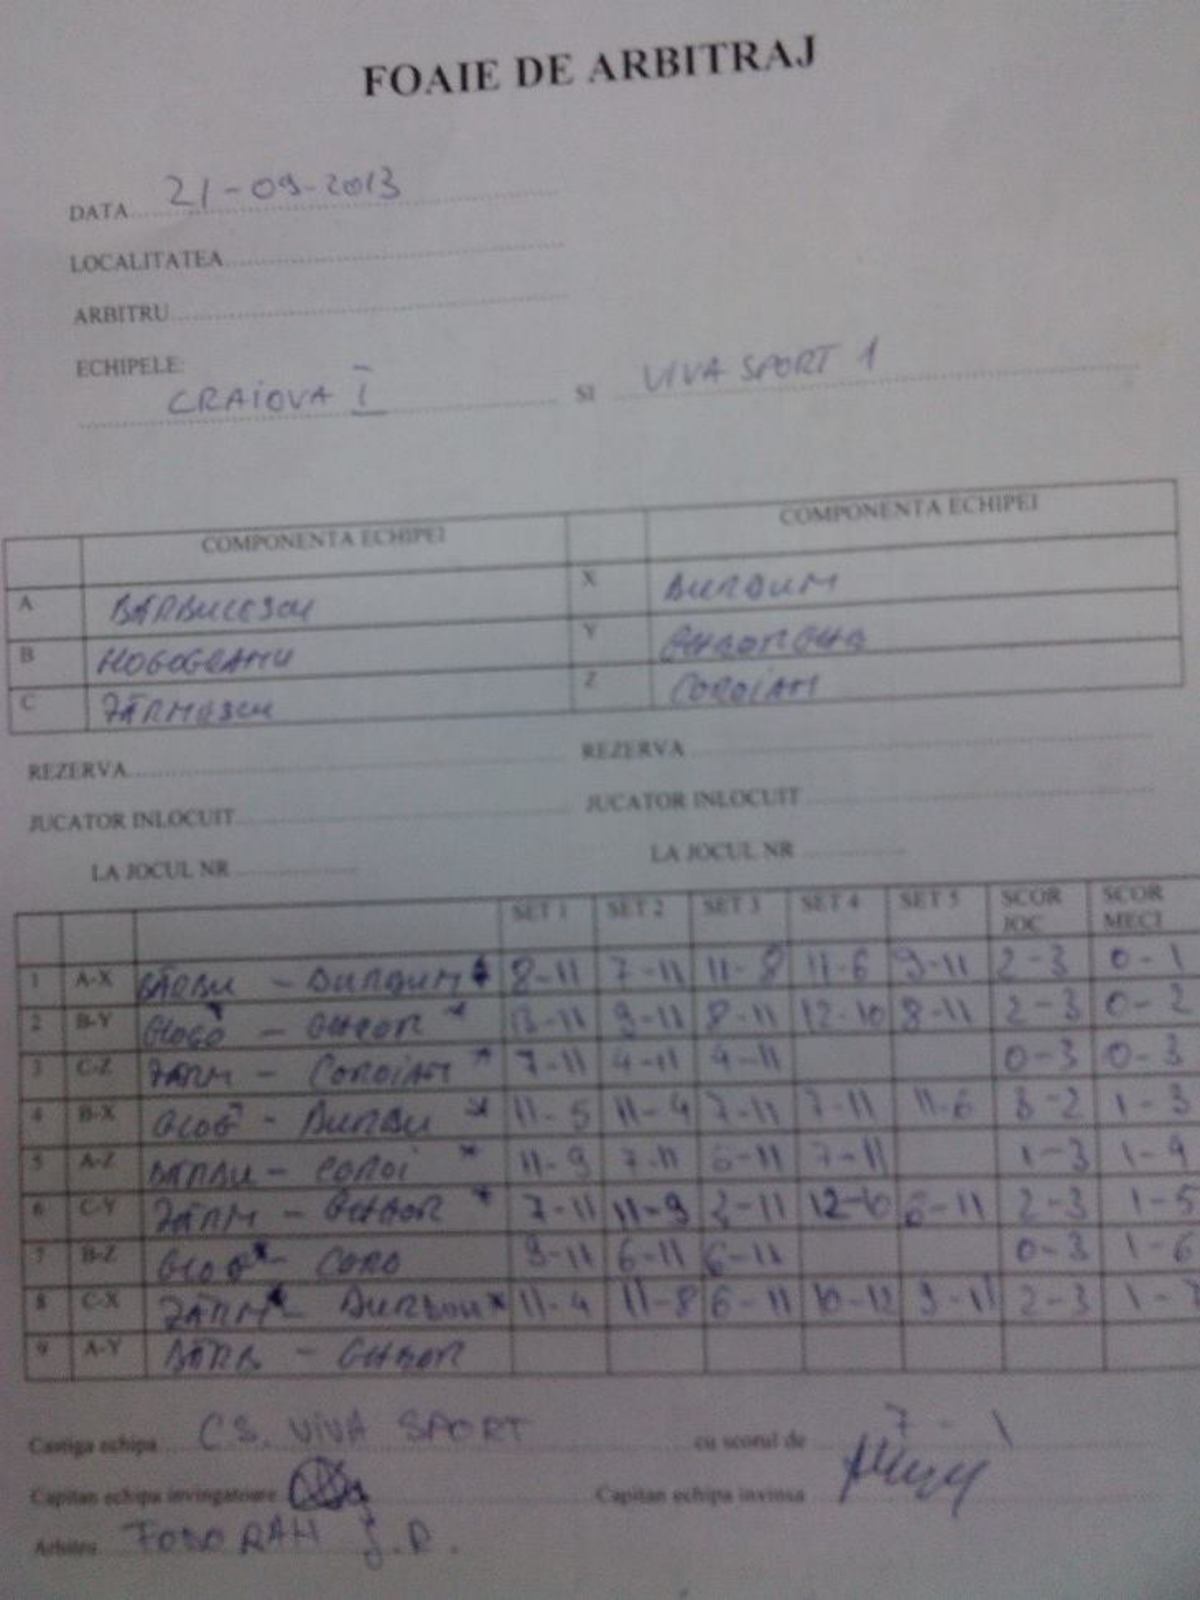 FOAIE DE ARBITRAJ
DATA 21-09-2013
LOCALITATEA
ARBITRU
ECHIPELE:
CRAIOVA I SI VIVA SPORT 1
COMPONENTA ECHIPEI COMPONENTA ECHIPEI
A BĂRBULESCU X BURDUM
B Y GHEORGHE
C Z COROIAM
REZERVA REZERVA
JUCATOR INLOCUIT JUCATOR INLOCUIT
LA JOCUL NR LA JOCUL NR
SET 1 SET 2 SET 3 SET 4 SET 5 SCOR JOC SCOR MECI
1 A-X BĂRBU - 8-11 7-11 11-8 11-6 9-11 2-3 0-1
2 B-Y - GHEOR * 13-11 9-11 8-11 12-10 8-11 2-3 0-2
3 C-Z - COROIAM * 7-11 4-11 4-11 0-3 0-3
4 B-X - * 11-5 11-4 7-11 7-11 11-6 3-2 1-3
5 A-Z BĂRBU - COROI * 11-9 7-11 6-11 7-11 1-3 1-4
6 C-Y - GHEOR * 7-11 11-9 3-11 12-10 6-11 2-3 1-5
7 B-Z - CORO 9-11 6-11 6-11 0-3 1-6
8 C-X - * 11-4 11-8 6-11 10-12 9-11 2-3 1-7
9 A-Y BĂRB - GHEOR
Castiga echipa CS. VIVA SPORT cu scorul de 7-1
Capitan echipa invingatoare Capitan echipa invinsa
Arbitru